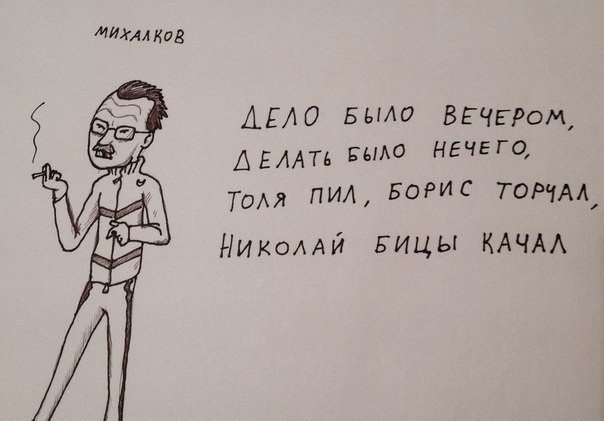 МИХАЛКОВ
ДЕЛО БЫЛО ВЕЧЕРОМ,
ДЕЛАТЬ БЫЛО НЕЧЕГО,
ТОЛЯ ПИЛ, БОРИС ТОРЧАЛ,
НИКОЛАЙ БИЦЫ КАЧАЛ